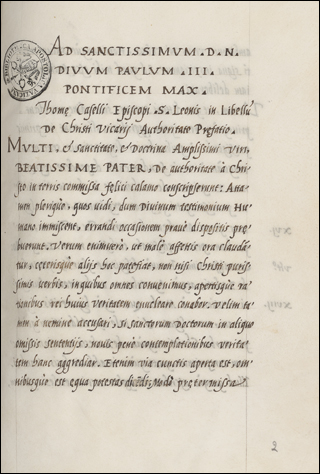 AD SANCTISSIMUM. D. N.
DIVUM PAULUM .III.
PONTIFICEM MAX.
Thomę Caselli Episcopi .S. Leonis in Libellũ
De Christi Vicarij Authoritate Prefatio.
MULTI, & sanctitate, & Doctrina Amplissimi Viri,
BEATISSIME PATER, De authoritate à Chri-
sto in terris commissa felici calamo conscripserunt: Atta-
men plerique, quos uidi, dum Diuinum testimonium Hu-
mano immiscent, errandi occasionem praue dispositis prę-
buerunt. Verum enimuerò, ut malè affectis ora claudã-
tur, cęterisque alijs hoc patefiat, non nisi Christi puris-
simis uerbis, in quibus omnes conuenimus, apertisque ra-
tionibus rei huius ueritatem enucleare conabor. Velim ta-
men à nemine accusari, si sanctorum Doctorum in aliquo
omissis sententijs, nouis penè contemplationibus uerita-
tem hanc aggrediar. Etenim uia cunctis aperta est, om-
nibusque est equa potestas dicẽdi, Modo prętermissa
2